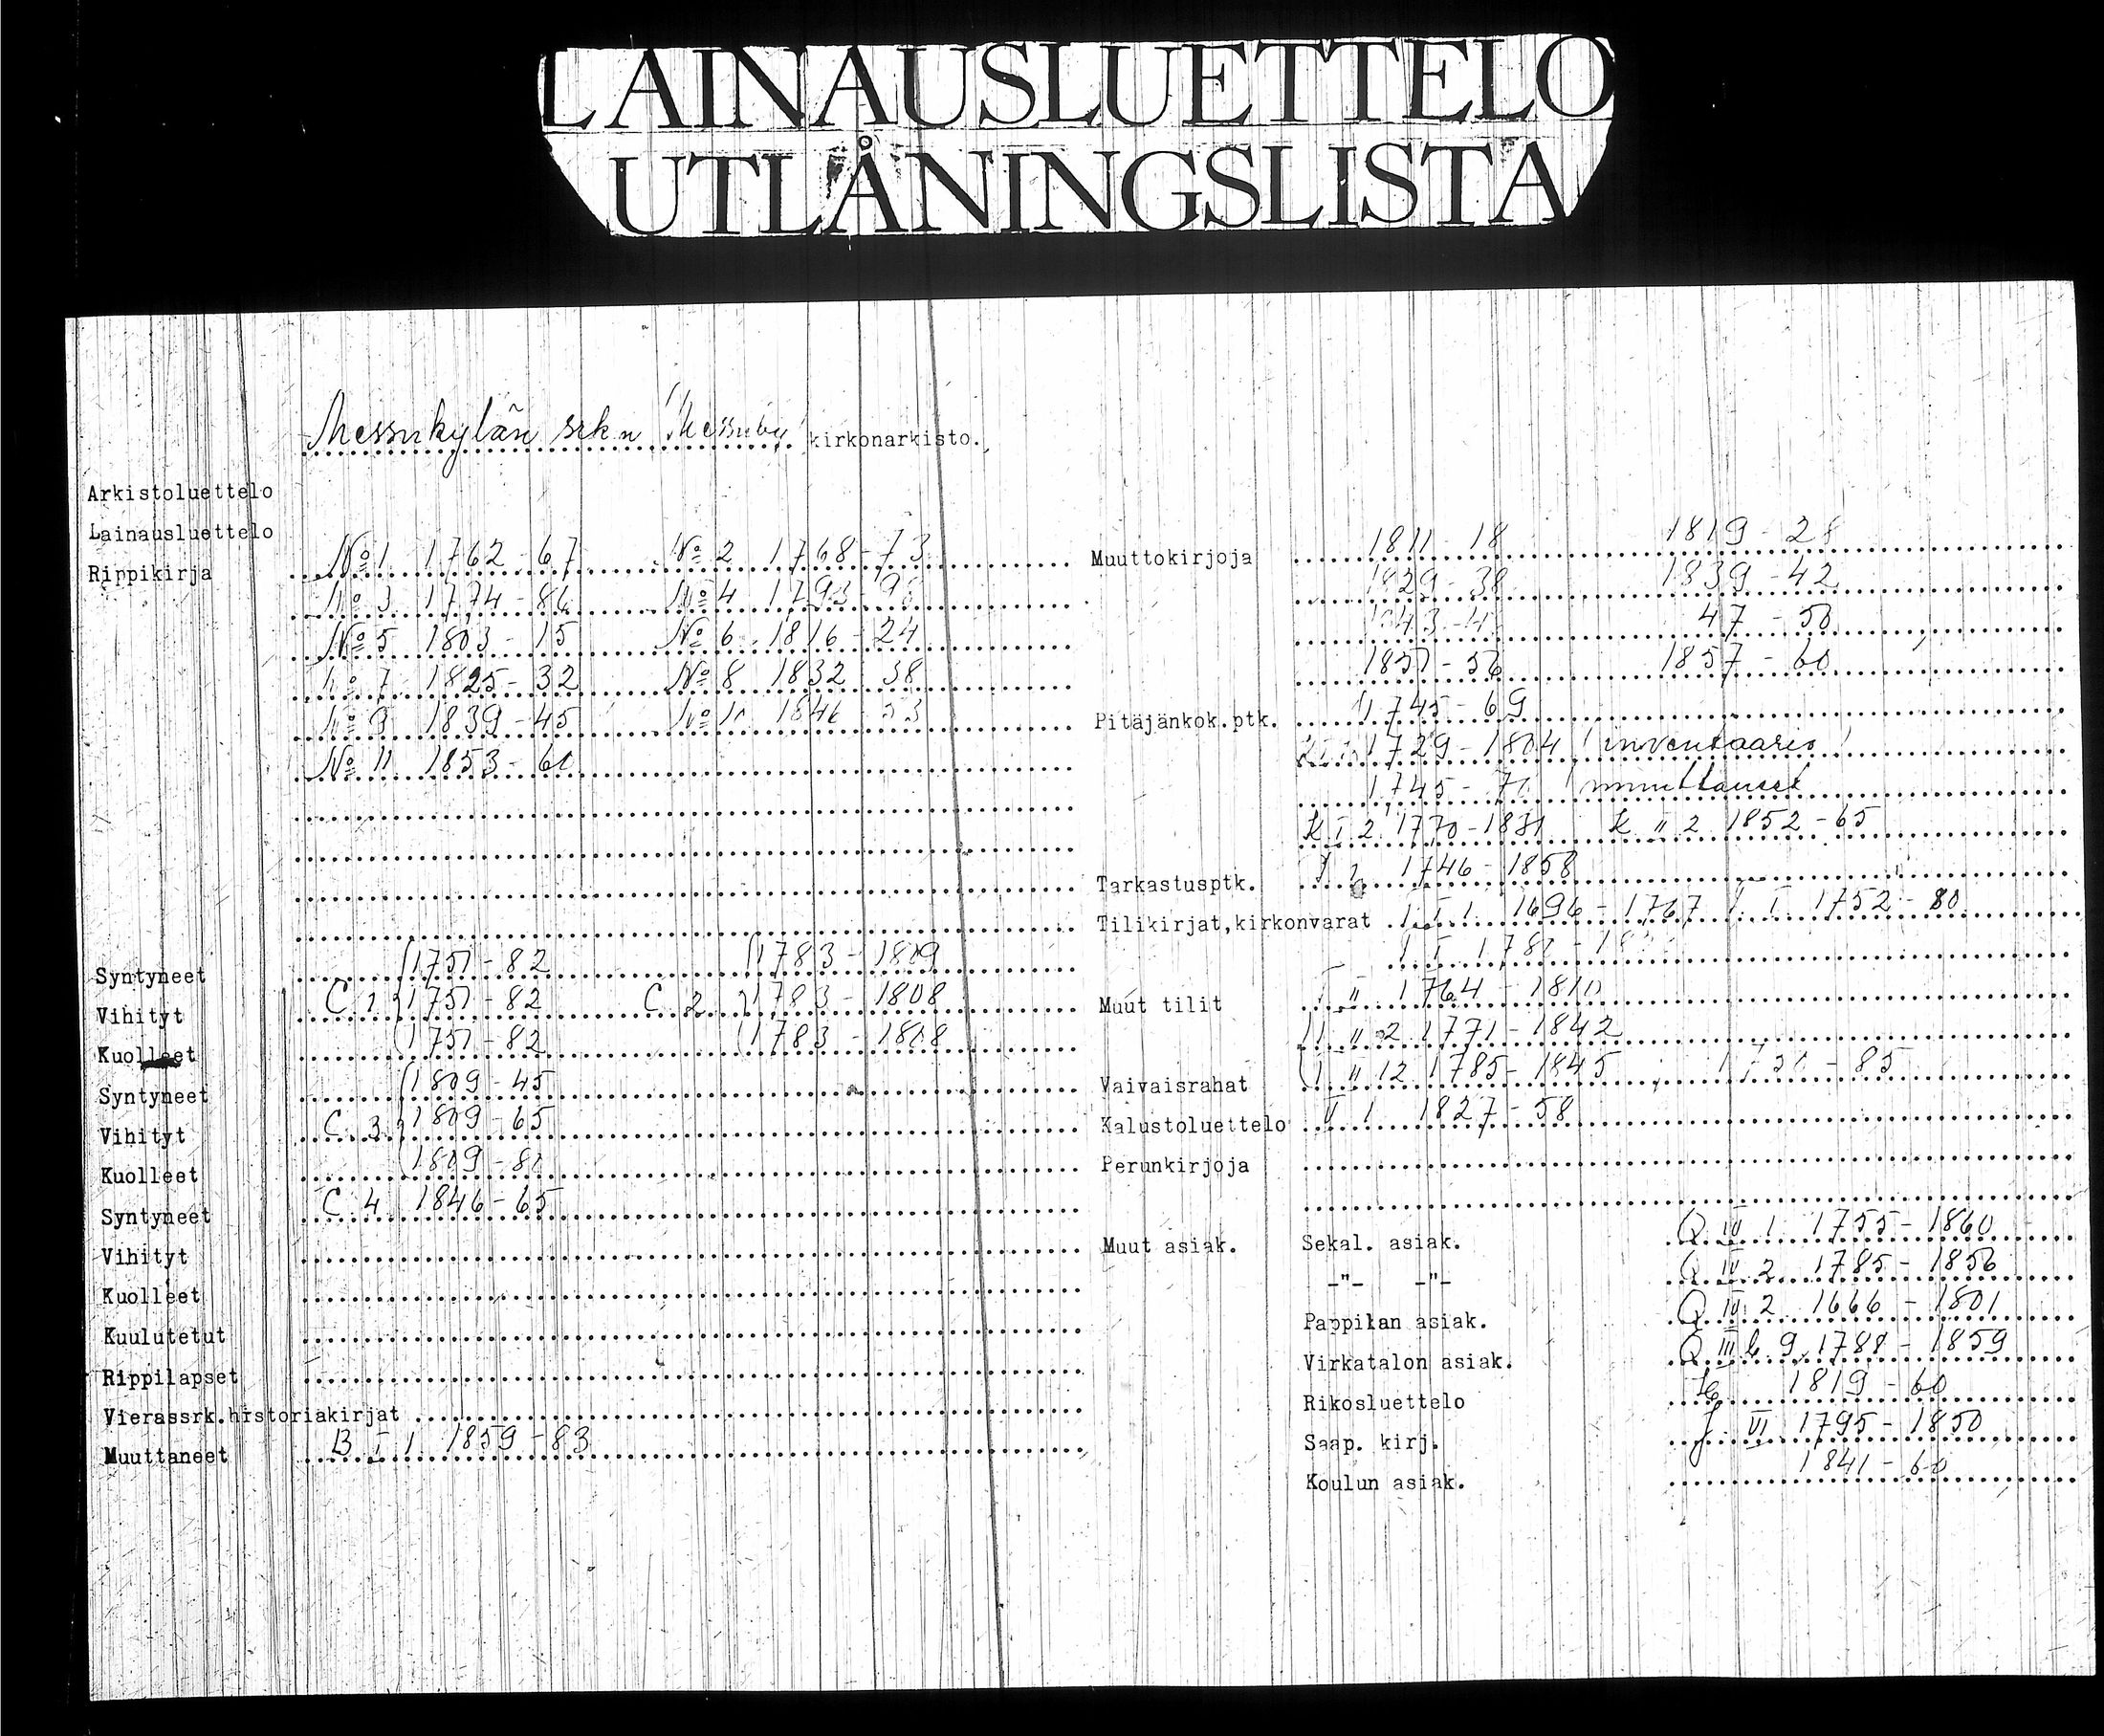 LAINAUSLUETTELO
UTLÅNINGSLISTA
Messukylän srk:n Messuby kirkonarkisto.
Arkistoluettelo
Lainausluettelo
Rippikirja No 1 1762-67 No 2 1768-73
No 3 1774-86 No 4 1793-98
No 5 1803-15 No 6 1816-24
No 7 1825-32 No 8 1832-38
No 9 1839-45 No 10 1846-53
No 11 1853-60
Syntyneet 1751-82 1783-1809
Vihityt C 1 1751-82 C 2 1783-1808
Kuolleet 1751-82 1783-1808
Syntyneet 1809-45
Vihityt C 3 1809-65
Kuolleet 1809-80
Syntyneet C 4 1846-65
Vihityt
Kuolleet
Kuulutetut
Rippilapset
Vierassrk.historiakirjat
Muuttaneet B I 1 1859-83
Muuttokirjoja 1811-18 1819-28
1829-38 1839-42
47-50
1851-56 1857-60
Pitäjänkok.ptk. 1745-69
1729-1804 inventaario
1745-
K I 2 1770-1831 K II 2 1852-65
Tarkastusptk. 1746-1858
Tilikirjat,kirkonvarat 1696-1767 1752-80
Muut tilit 1764-1810
II 2 1771-1842
Vaivaisrahat II 12 1785-1845 -85
Kalustoluettelo 1827-58
Perunkirjoja
Muut asiak. Sekal. asiak. Q IV 1 1755-1860
-"- -"- Q IV 2 1785-1856
Pappilan asiak. Q III 2 1666-1801
Virkatalon asiak. Q III b 9 1788-1859
Rikosluettelo 1819-60
Saap. kirj. J VI 1795-1850
Koulun asiak. 1841-60